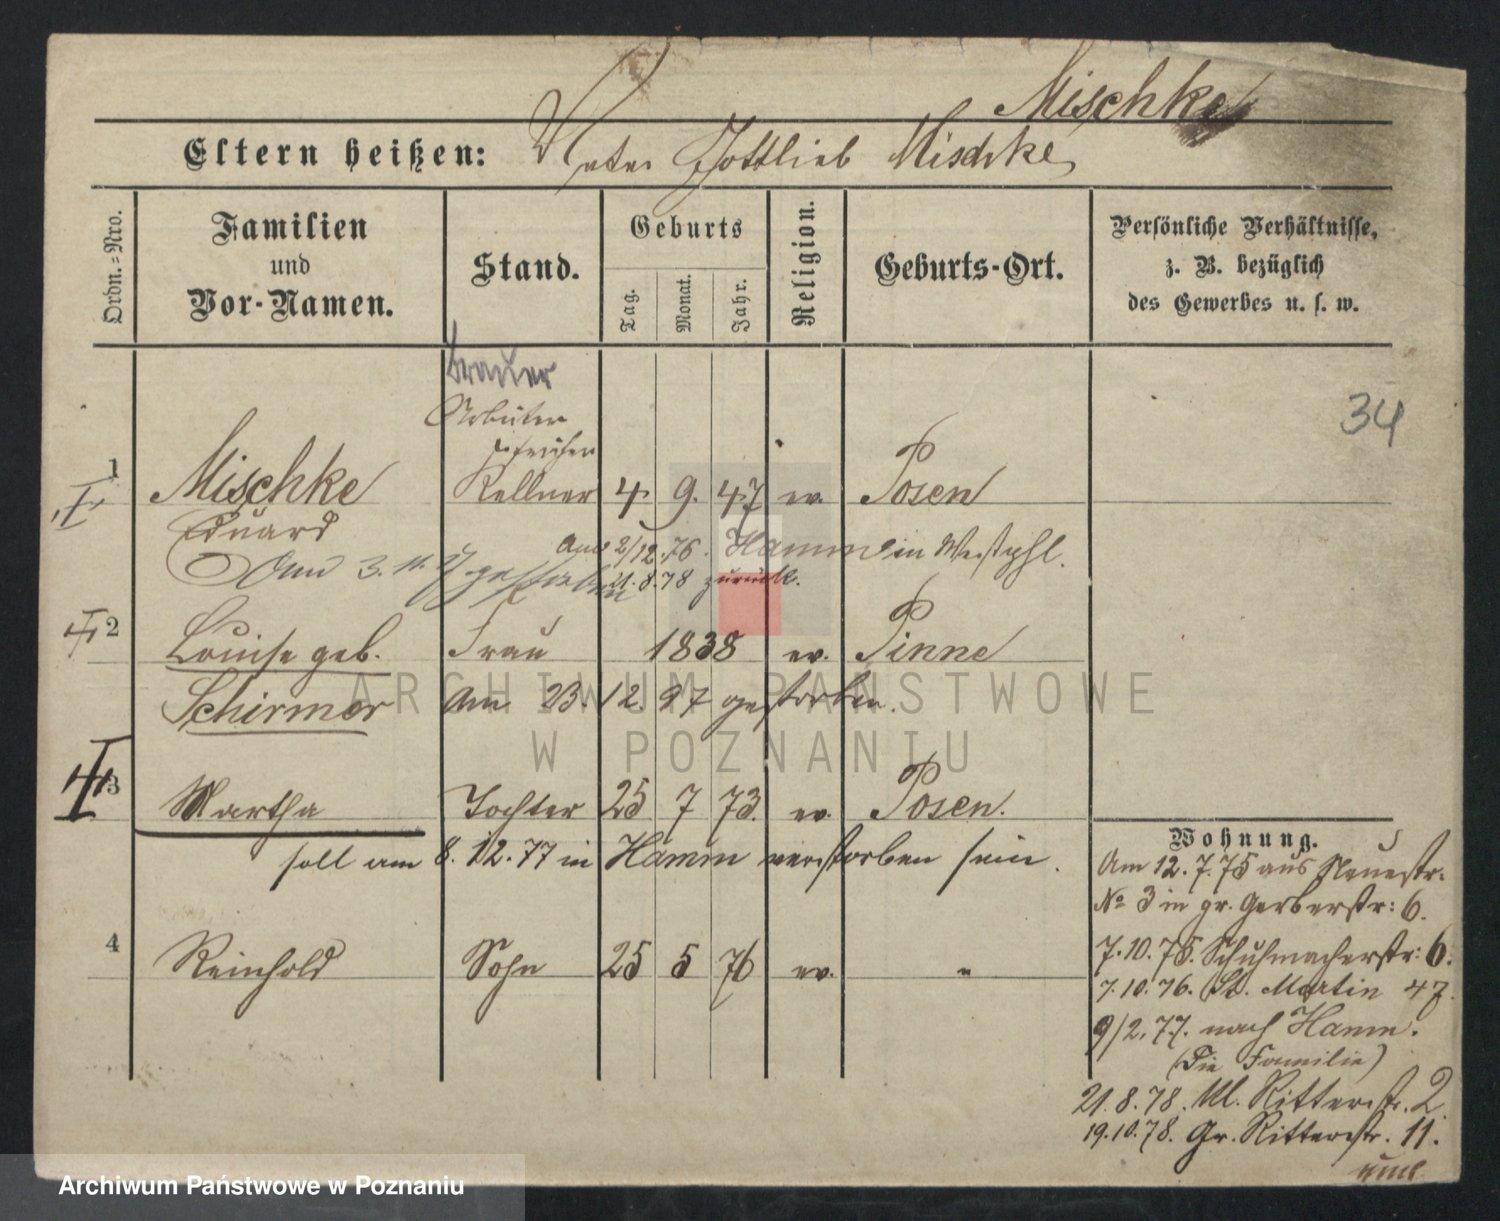 Mischke
Eltern heißen: Vater Gottlieb Mischke
Ordn.=Nro.
Familien
und
Vor-Namen.
Stand.
Geburts
Tag.
Monat.
Jahr.
Religion.
Geburts-Ort.
Persönliche Verhältnisse,
z. B. bezüglich
des Gewerbes u. s. w.
34
Brauer
Arbeiter
früher
1 Mischke Kellner 4 9. 47 ev. Posen
Eduard
2/12.76. Hamm in Westphl.
Am 3. 11. gestorben 21.8.78 zurück.
2 Louise geb. Frau 1838 ev. Pinne
Schirmer Am 23. 12. 97 gestorben.
3 Martha Tochter 25 7 73. ev. Posen.
soll am 8.12.77 in Hamm verstorben sein.
4 Reinhold Sohn 25 5 76 ev. "
Wohnung.
Am 12.7.75 aus Neuestr.
No 3 in gr. Gerberstr: 6.
7.10.75. Schuhmacherstr: 6.
7.10.76. St. Martin 47.
9/2.77. nach Hamm.
(Die Familie)
21.8.78. Kl. Ritterstr. 2.
19.10.78. Gr. Ritterstr. 11.
ARCHIWUM PAŃSTWOWE
W POZNANIU
Archiwum Państwowe w Poznaniu